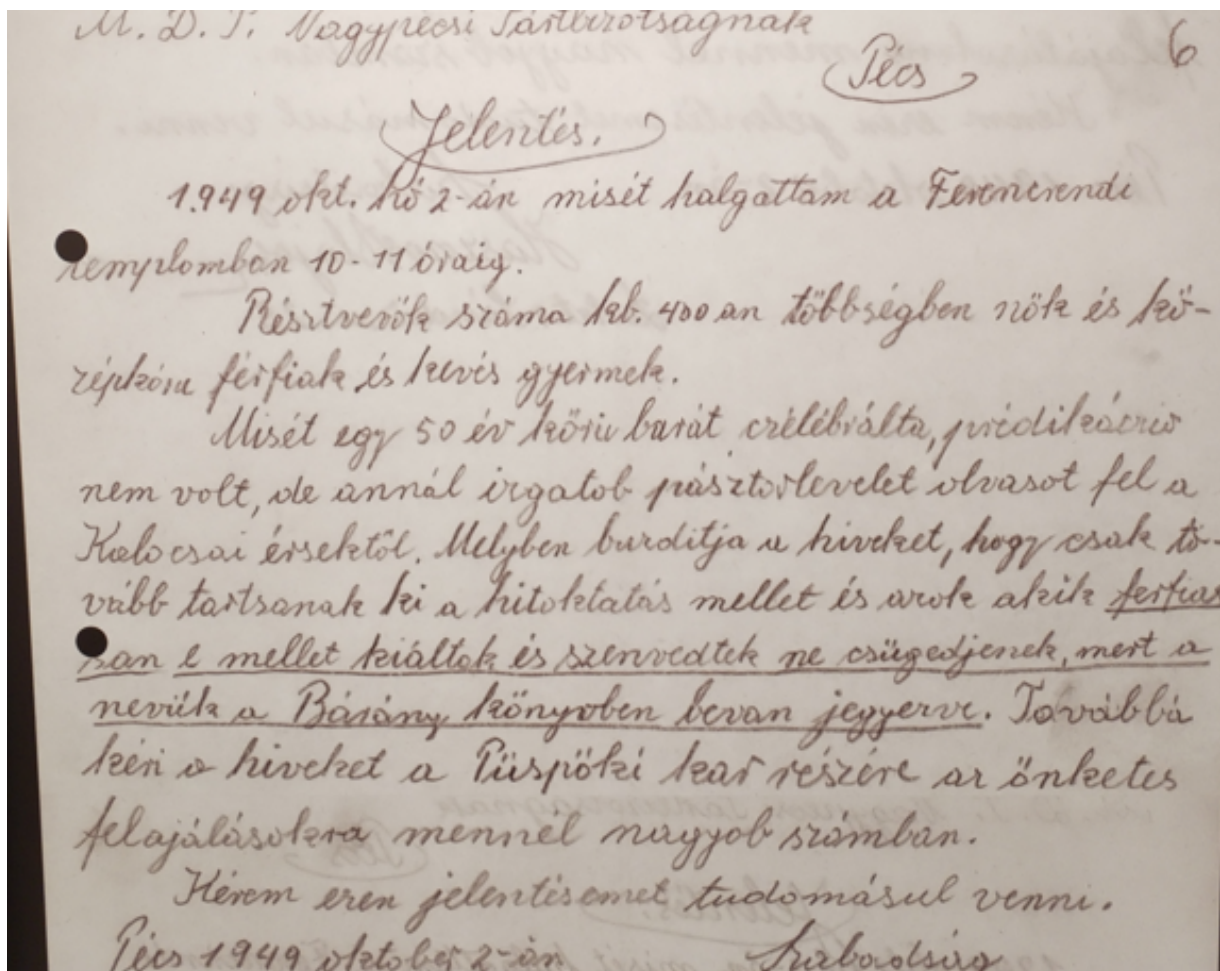 M. D. P. Nagypécsi Pártbizotságnak
6
Pécs
Jelentés.
1.949 okt. hó 2-án misét halgattam a Ferencrendi
templomban 10-11 óráig.
Résztvevők száma kb. 400 an többségben nők és kö-
zépkóru férfiak és kevés gyermek.
Misét egy 50 év körüi barát czélébrálta, prédikáczió
nem volt, de annál izgatob pásztorlevelet olvasot fel a
Kalocsai érsektől. Melyben burditja a hiveket, hogy csak to-
vább tartsanak ki a hitoktatás mellet és azok akik férfias
san e mellet kiáltok és szenvedtek ne csügedjenek, mert a
nevük a Bárány könyvben bevan jegyezve. Továbbá
kéri a hiveket a Püspöki kar részére az önketes
felajálásokra mennél nagyob számban.
Kérem ezen jelentésemet tudomásul venni.
Pécs 1949 oktober 2-án Szabadság